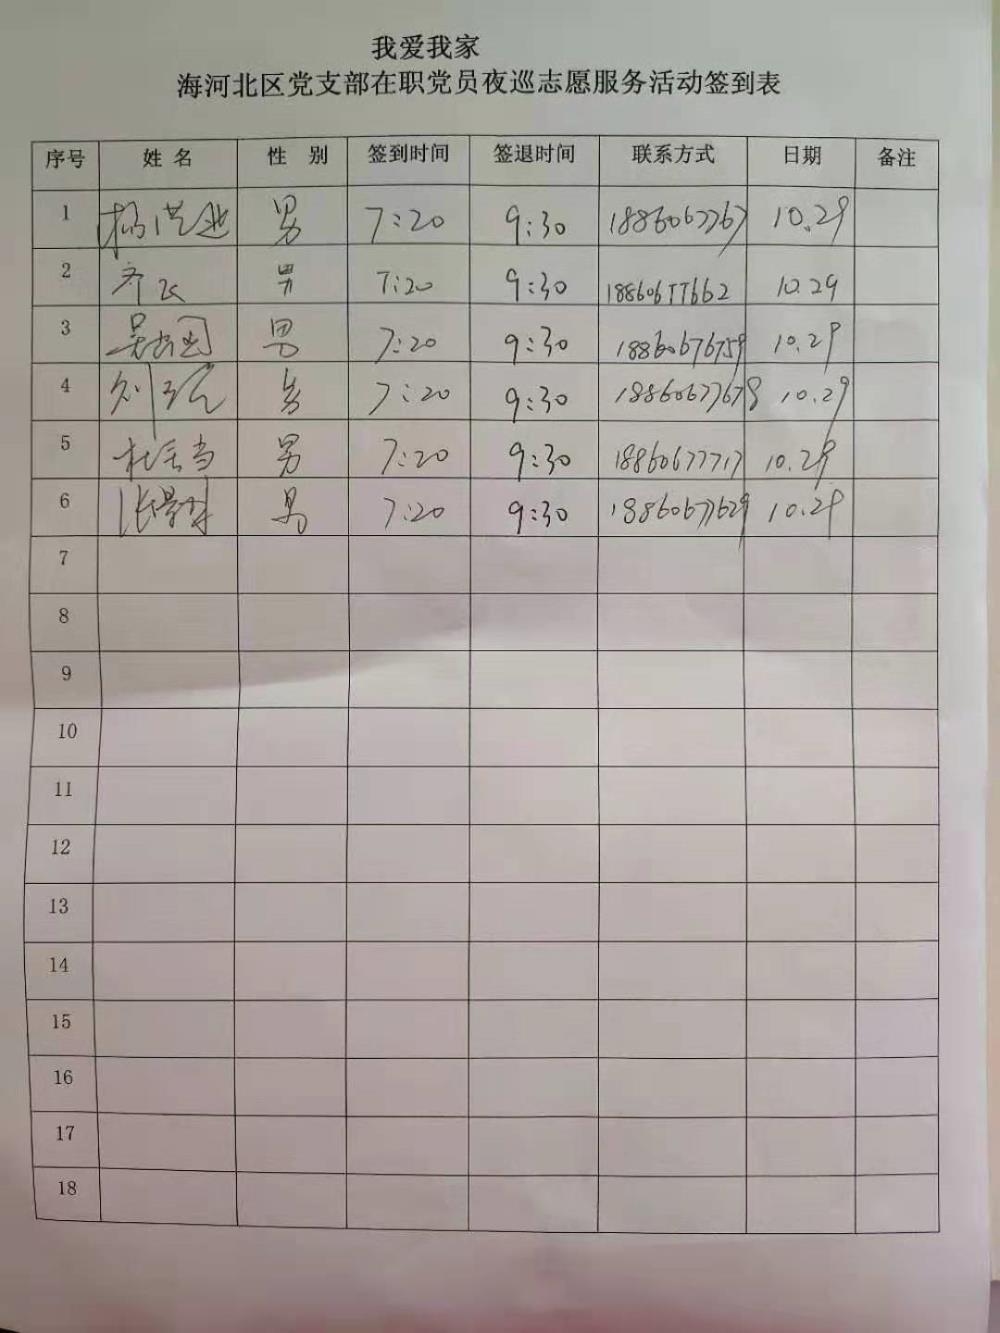 我爱我家
海河北区党支部在职党员夜巡志愿服务活动签到表
序号 姓名 性别 签到时间 签退时间 联系方式 日期 备注
1 男 7:20 9:30 18860677767 10.29
2 齐飞 男 7:20 9:30 18860677662 10.29
3 男 7:20 9:30 18860676759 10.29
4 男 7:20 9:30 18860677678 10.29
5 男 7:20 9:30 18860677717 10.29
6 男 7:20 9:30 18860677629 10.29
7
8
9
10
11
12
13
14
15
16
17
18